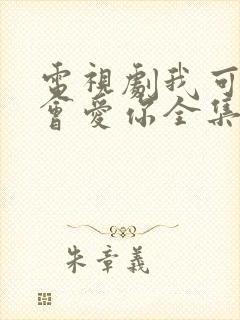 電視劇我可
會愛你全集
朱章義